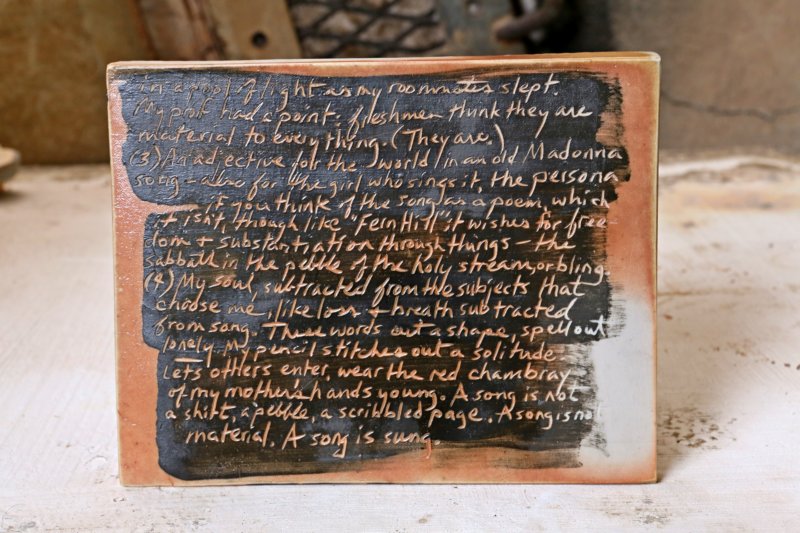 in a pool of light as my roommates slept.
My prof had a point: freshmen think they are
material to everything. (They are.)
(3) An adjective for the world in an old Madonna
song – also for the girl who sings it, the persona
if you think of the song as a poem, which
it isn't, though like "Fern Hill" it wishes for free-
dom + substantiation through things – the
sabbath in the pebble of the holy stream, or bling.
(4) My soul, subtracted from the subjects that
choose me, like loss + breath subtracted
from song. These words cut a shape, spell out
lonely. My pencil stitches out a solitude
let's others enter, wear the red chambray
of my mother's hands young. A song is not
a shirt, a pebble, a scribbled page. A song is not
material. A song is sung.